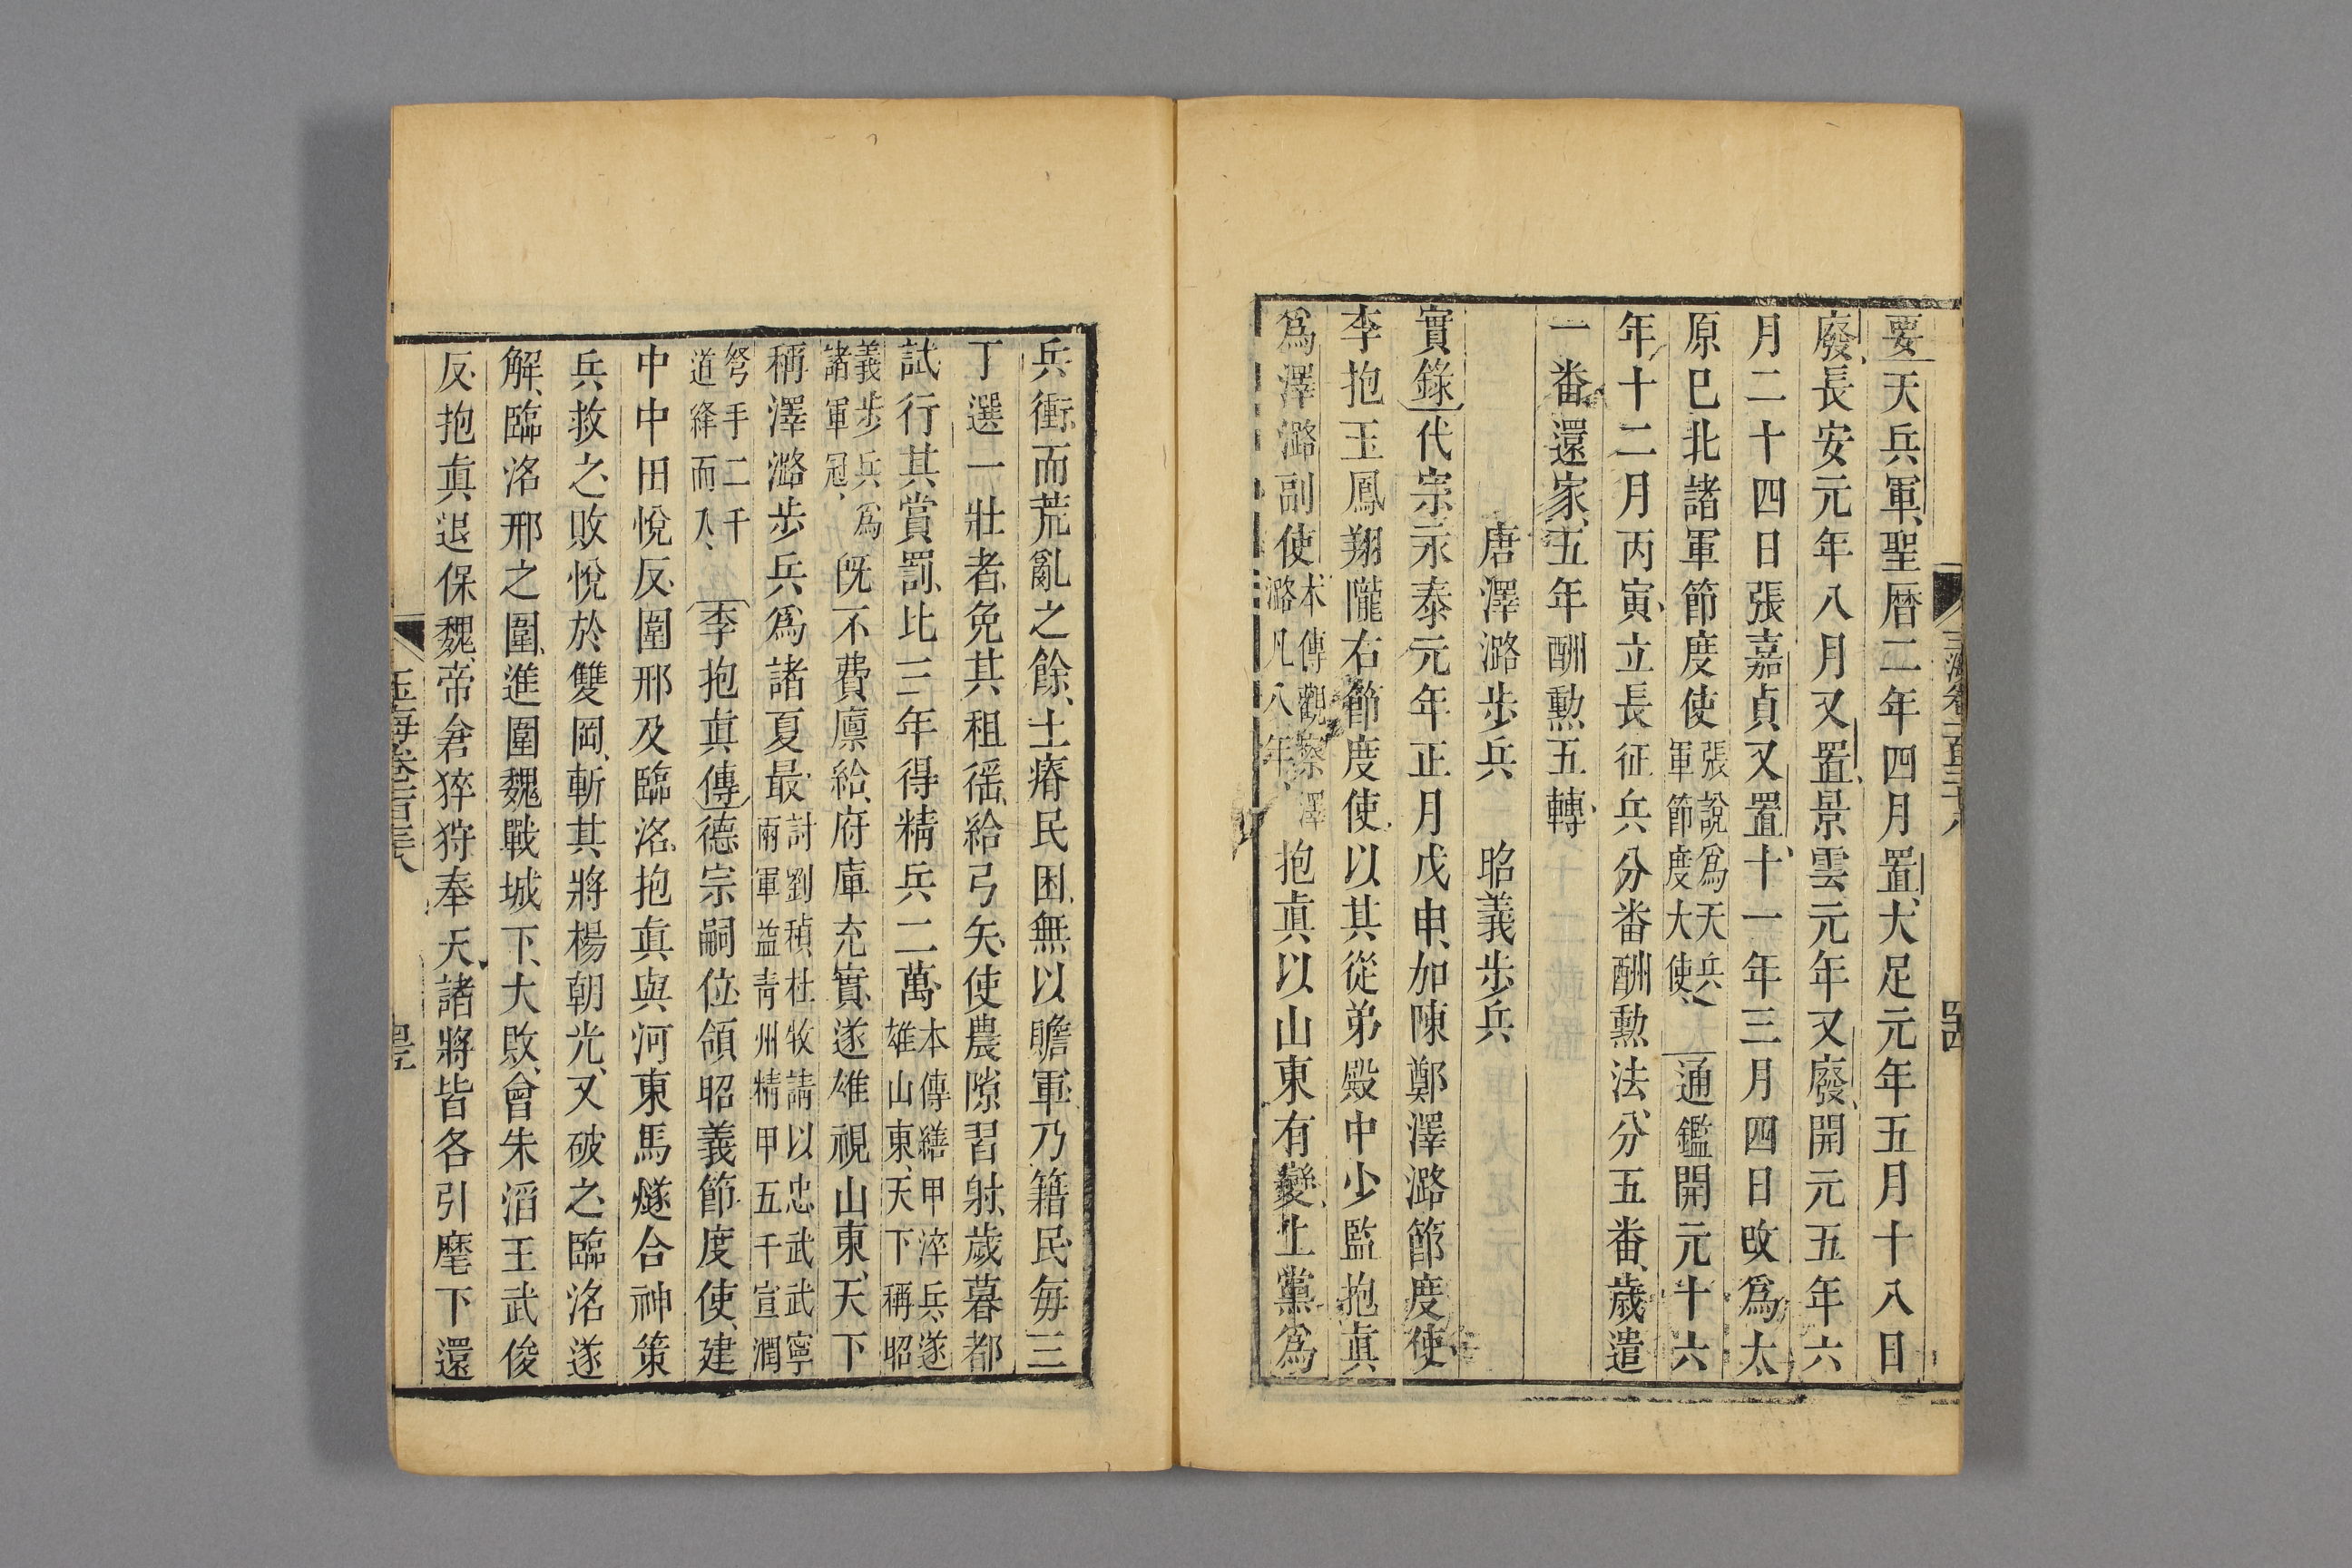 要天兵軍聖曆二年四月置大足元年五月十八日
廢長安元年八月又置景雲元年又廢開元五年六
月二十四日張嘉貞又置十一年三月四日改爲太
原巳北諸軍節度使張說爲天兵軍節度大使通鑑開元十六
年十二月丙寅立長征兵分番酬勲法分五番歲遣
一番還家五年酬勲五轉
唐澤潞步兵 昭義步兵
實錄代宗永泰元年正月戊申加陳鄭澤潞節度使
李抱玉鳳翔隴右節度使以其從弟殿中少監抱眞
爲澤潞副使本傳觀察澤潞凡八年抱眞以山東有變上黨爲
兵衝而荒亂之餘土瘠民困無以贍軍乃籍民每三
丁選一壯者免其租徭給弓矢使農隙習射歲暮都
試行其賞罰比三年得精兵二萬本傳繕甲淬兵遂雄山東天下稱昭
義步兵爲諸軍冠旣不費廩給府庫充實遂雄視山東天下
稱澤潞步兵爲諸夏最討劉稹杜牧請以忠武武寧兩軍益青州精甲五千宣潤
弩手二千道絳而入李抱眞傳德宗嗣位領昭義節度使建
中中田悅反圍邢及臨洺抱眞與河東馬燧合神策
兵救之敗悅於雙岡斬其將楊朝光又破之臨洺遂
解臨洺邢之圍進圍魏戰城下大敗會朱滔王武俊
反抱眞退保魏帝倉猝狩奉天諸將皆各引麾下還
玉海卷一百三十八